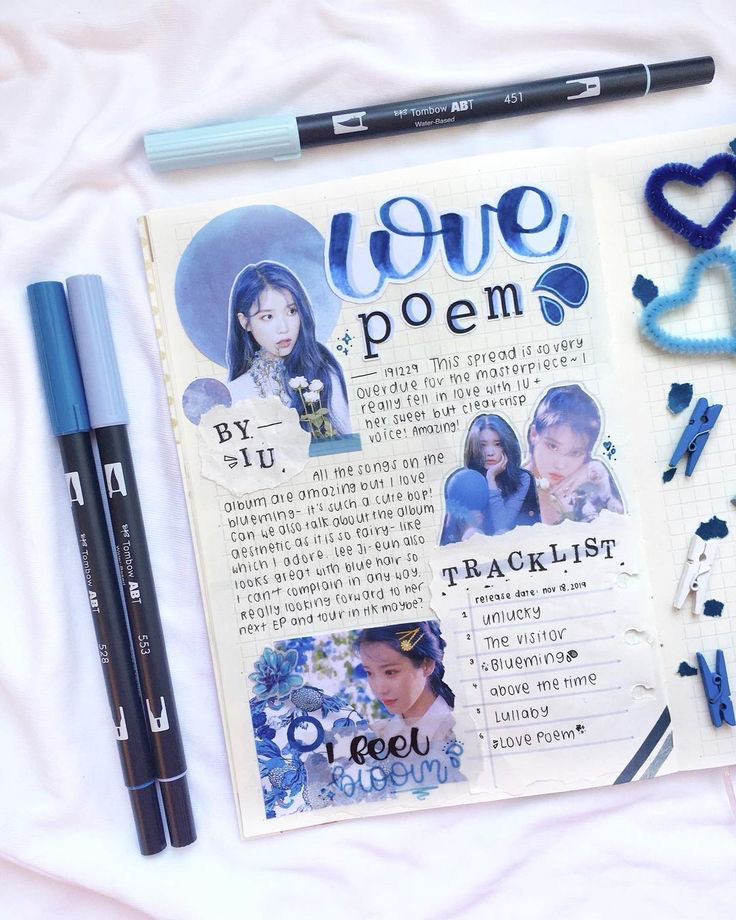 Tombow ABT 451
Water-Based
love
poem
191229 This spread is so very
overdue for the masterpiece~ I
really fell in love with IU +
her sweet but clear crisp
voice! Amazing!
BY —
IU
All the songs on the
album are amazing but I love
blueming- it's such a cute bop!
can we also talk about the album
aesthetic as it is so fairy-like
which I adore. Lee Ji-eun also
looks great with blue hair so
I can't complain in any way.
Really looking forward to her
next EP and tour in HK maybe?
TRACKLIST
release date: nov 18, 2019
1 unlucky
2 The visitor
3 Blueming
4 above the time
5 Lullaby
6 Love poem
I feel
bloom
Tombow ABT 528
Tombow ABT 553